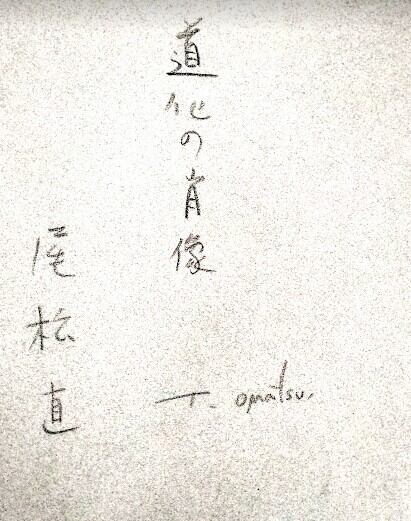 道化の肖像
尾松直
T. omatsu.